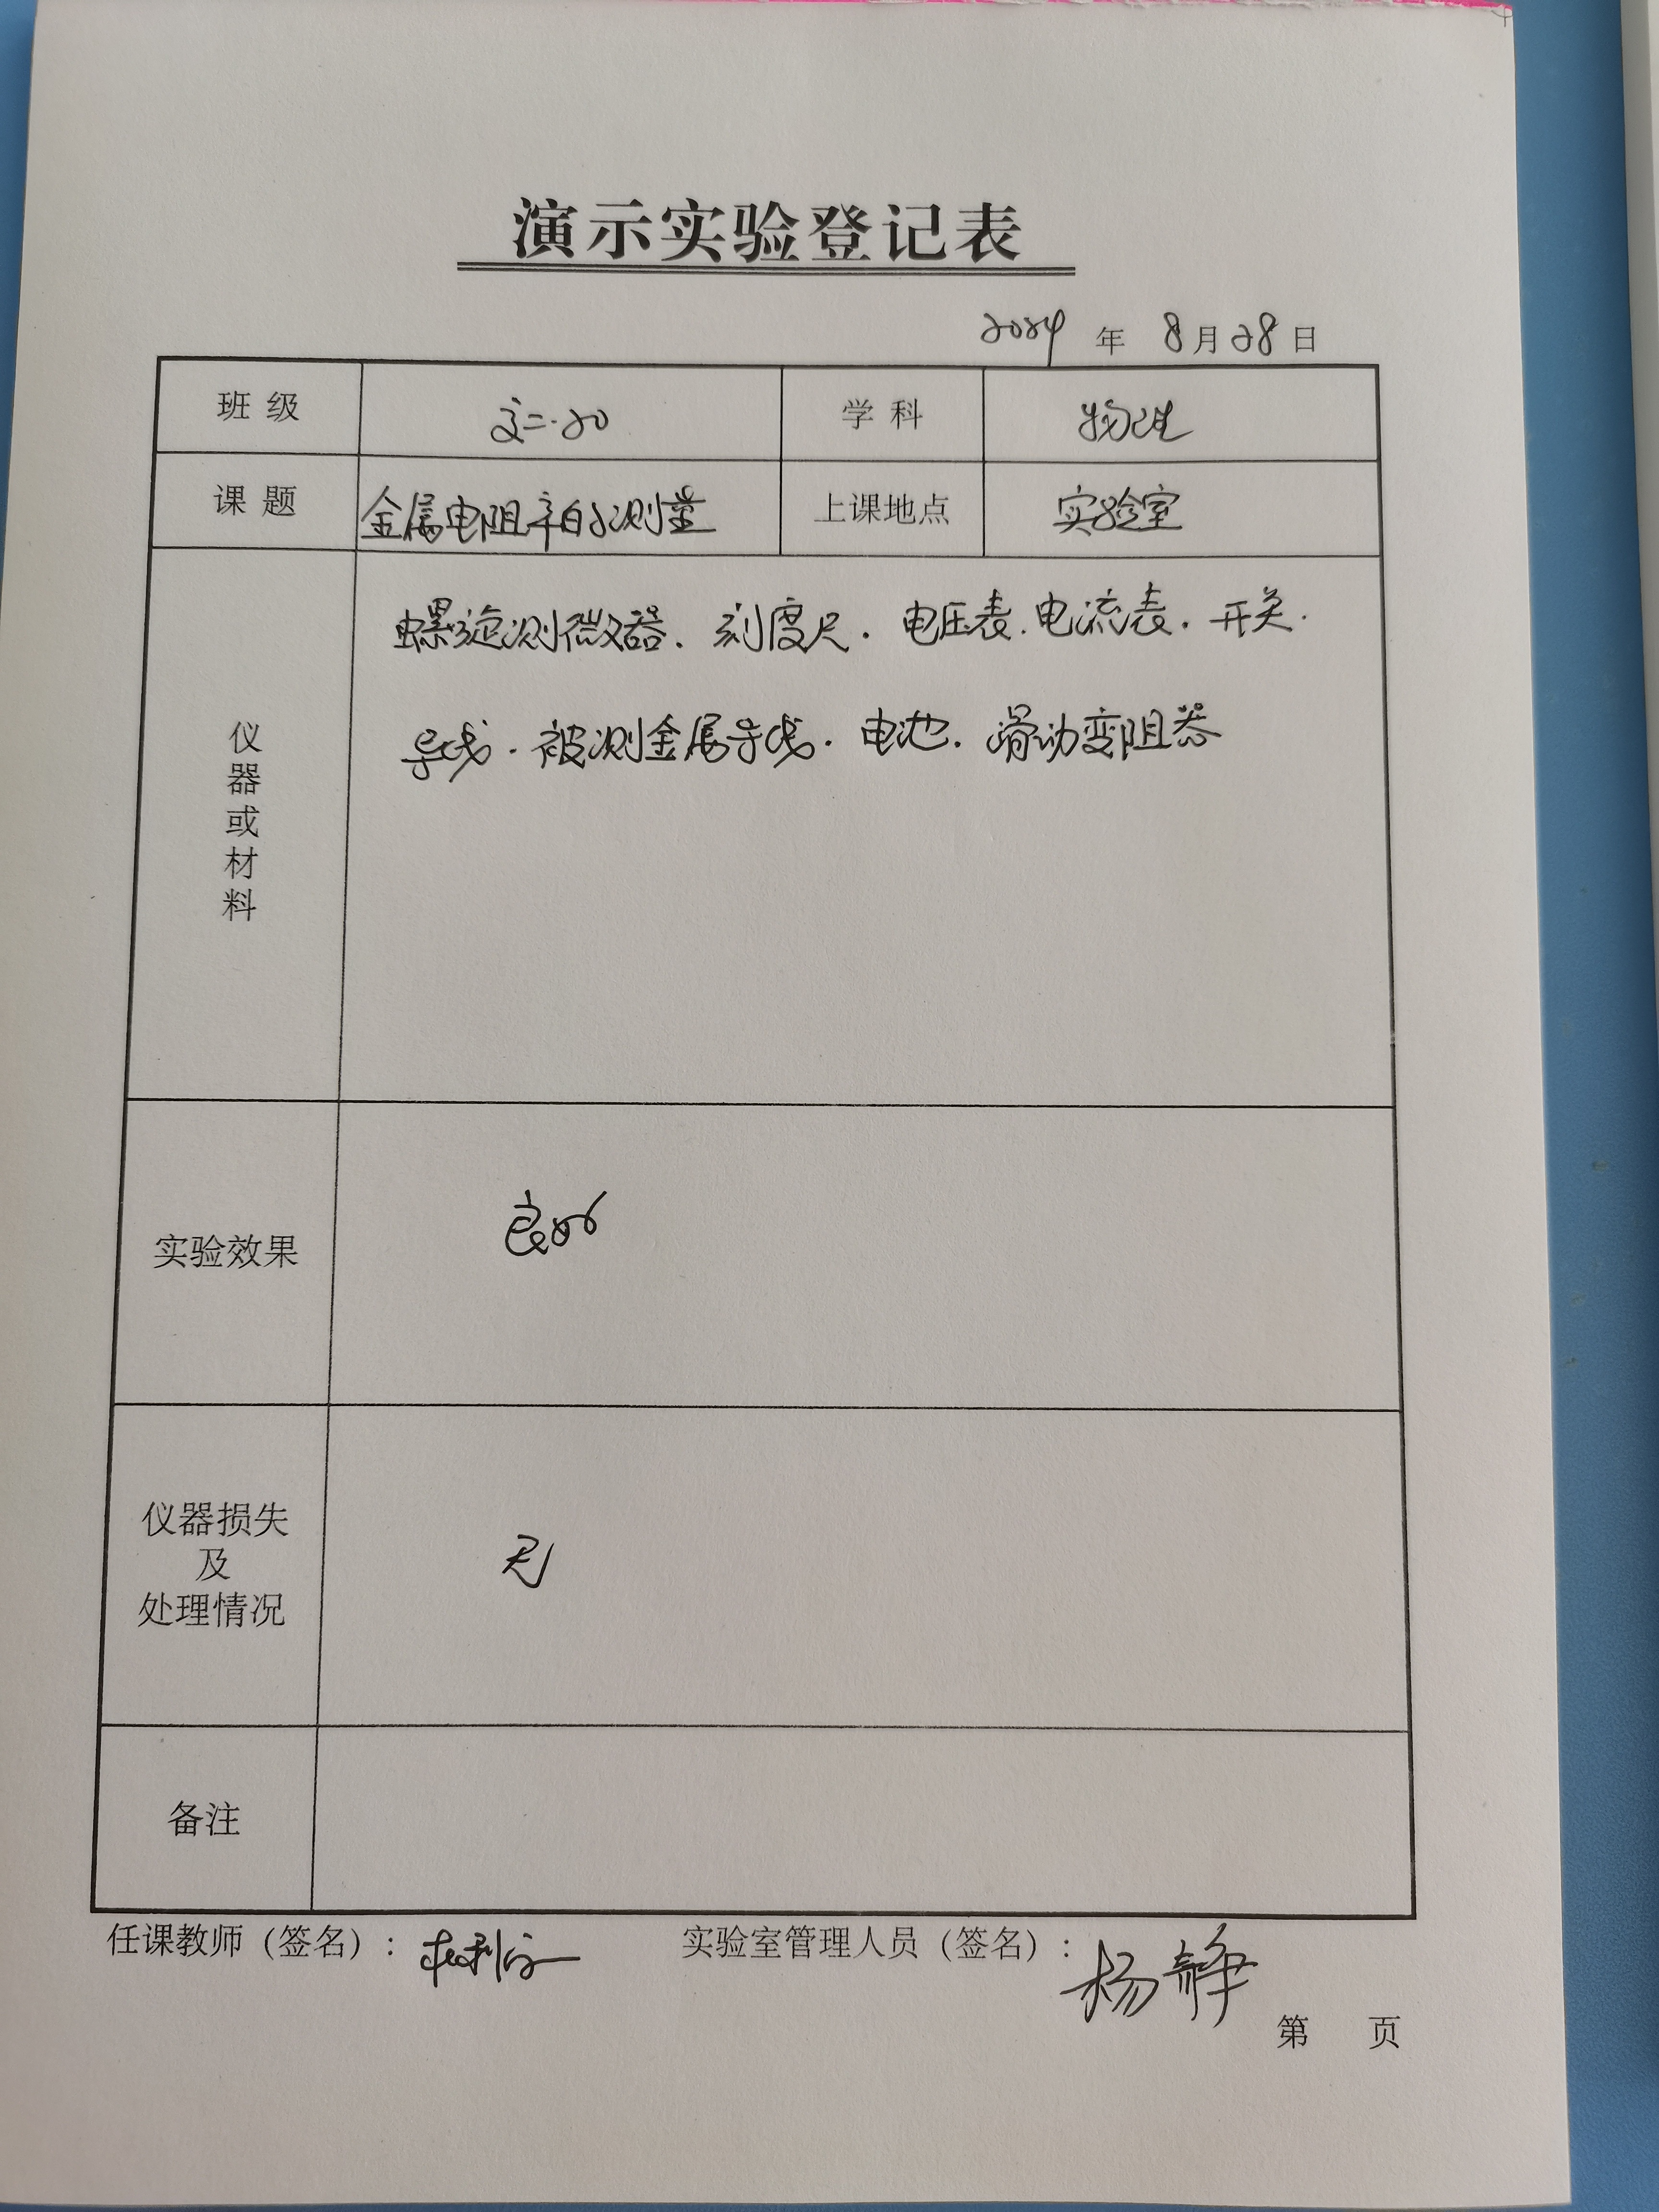 演示实验登记表
2024 年 8月28日
班 级 高二.20 学 科 物理
课 题 金属电阻率的测量 上课地点 实验室
仪器或材料
螺旋测微器. 刻度尺. 电压表. 电流表. 开关.
导线. 被测金属导线. 电池. 滑动变阻器
实验效果 良好
仪器损失
及
处理情况
无
备注
任课教师（签名）: 实验室管理人员（签名）: 杨静
第 页